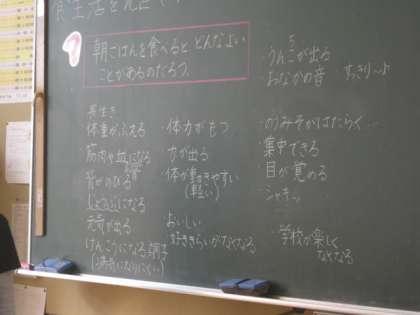 食生活を見直
朝ごはんを食べると どんなよい
ことがあるのだろう。
・うんこが出る
・おなかの音 すっきり〜♪
長生き
体重がふえる
筋肉や血になる
背がのびる
じょうぶになる
元気が出る
けんこうになる
(病気になりにくい)
・体力がもつ
・力が出る
体が動きやすい
(軽い)
おいしい
好ききらいがなくなる
・のうみそがはたらく…
・集中できる
・目が覚める
・シャキッ
・学校が楽しく
なくなる